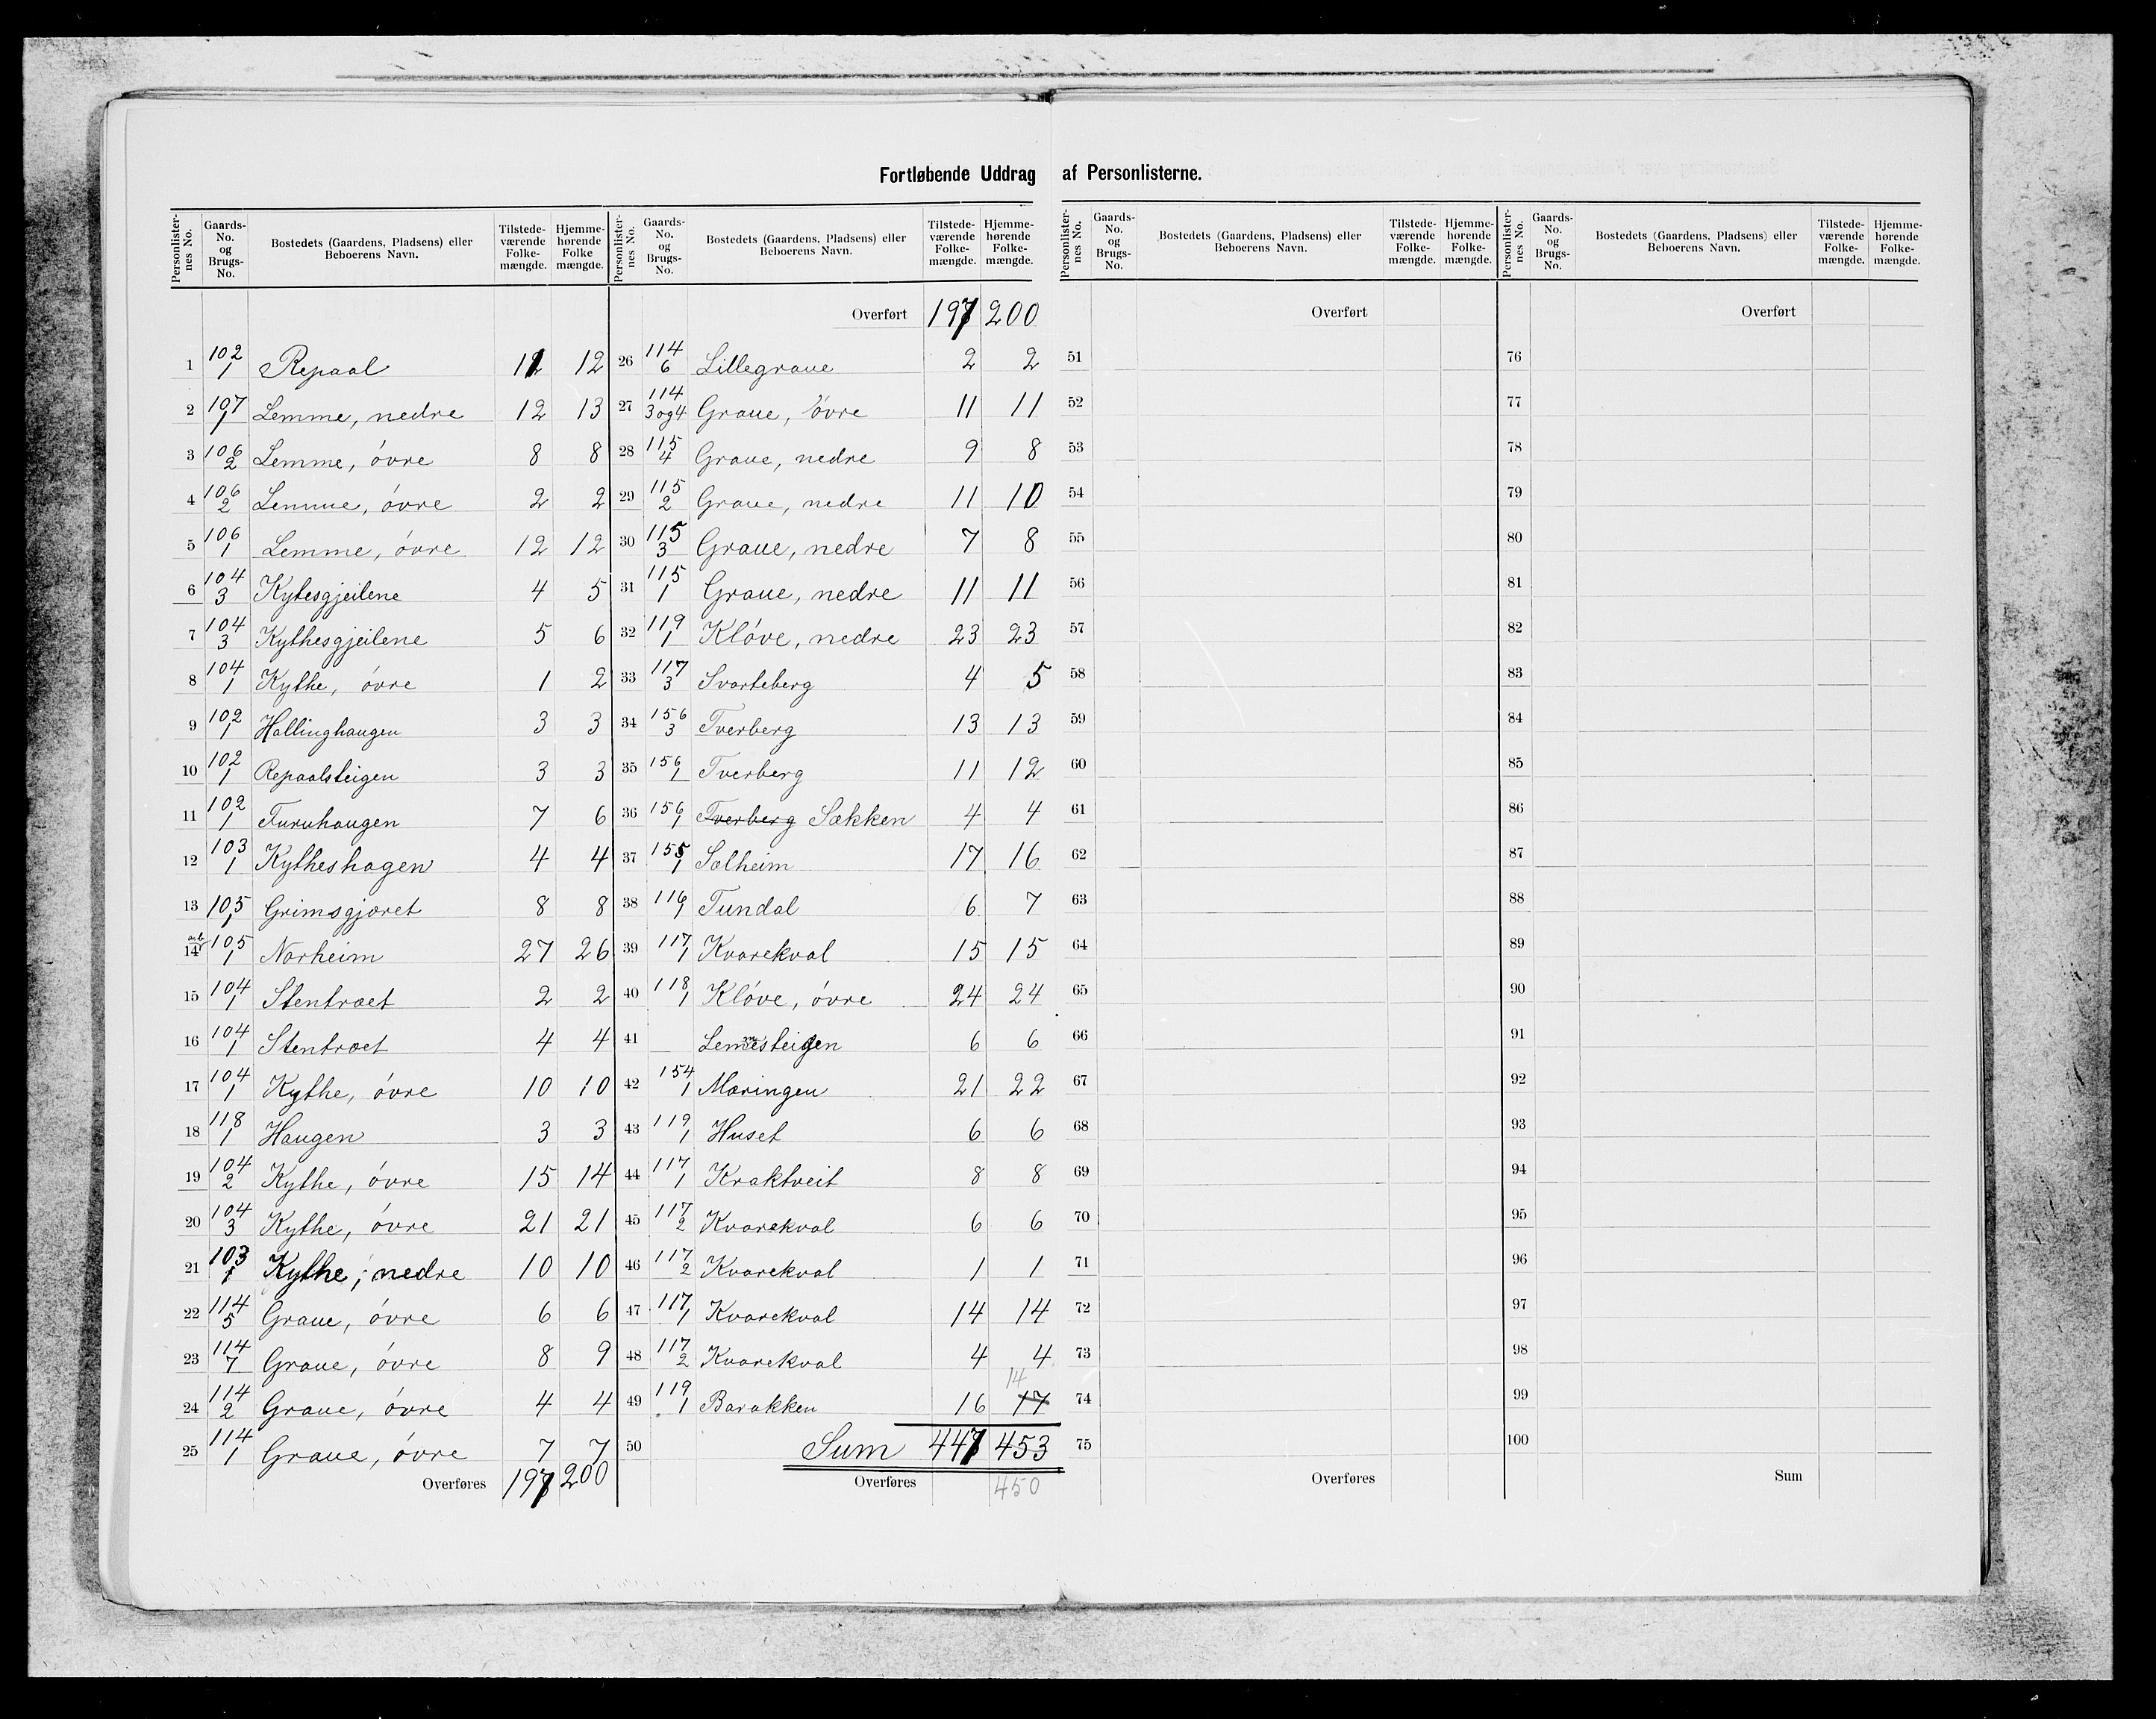 Fortløbende Uddrag af Personlisterne.
Personlister-nes No. | Gaards-No. og Brugs-No. | Bostedets (Gaardens, Pladsens) eller Beboerens Navn. | Tilstede-værende Folke-mængde. | Hjemme-hørende Folke mængde.
1 102/1 Repaal 11 12
2 107/1 Lemme, nedre 12 13
3 106/2 Lemme, övre 8 8
4 106/2 Lemme, övre 2 2
5 106/1 Lemme, övre 12 12
6 104/3 Kytesgjeilene 4 5
7 104/3 Kythesgjeilene 5 6
8 104/1 Kythe, övre 1 2
9 102/1 Hallinghaugen 3 3
10 102/1 Repaalsteigen 3 3
11 102/1 Furuhaugen 7 6
12 103/1 Kytheshagen 4 4
13 105/1 Grimsgjæret 8 8
14 a.b. 105/1 Norheim 27 26
15 104/1 Stentræet 2 2
16 104/1 Stentræet 4 4
17 104/1 Kythe, övre 10 10
18 118/1 Haugen 3 3
19 104/2 Kythe, övre 15 14
20 104/3 Kythe, övre 21 21
21 103/1 Kythe, nedre 10 10
22 114/5 Graue, övre 6 6
23 114/7 Graue, övre 8 9
24 114/2 Graue, övre 4 4
25 114/1 Graue, övre 7 7
Overføres 197 200
Personlister-nes No. | Gaards-No. og Brugs-No. | Bostedets (Gaardens, Pladsens) eller Beboerens Navn. | Tilstede-værende Folke-mængde. | Hjemme-hørende Folke-mængde.
Overført 197 200
26 114/6 Lillegraue 2 2
27 114/3 og 4 Graue, övre 11 11
28 115/4 Graue, nedre 9 8
29 115/2 Graue, nedre 11 10
30 115/3 Graue, nedre 7 8
31 115/1 Graue, nedre 11 11
32 119/1 Klöve, nedre 23 23
33 117/3 Svarteberg 4 5
34 156/3 Tverberg 13 13
35 156/1 Tverberg 11 12
36 156/1 Tverberg Sækken 4 4
37 155/1 Sælheim 17 16
38 116/1 Tundal 6 7
39 117/1 Kvarekval 15 15
40 118/1 Klöve, övre 24 24
41 Lemmesteigen 6 6
42 154/1 Mæringen 21 22
43 119/1 Huset 6 6
44 117/1 Kraktveit 8 8
45 117/2 Kvarekval 6 6
46 117/2 Kvarekval 1 1
47 117/1 Kvarekval 14 14
48 117/2 Kvarekval 4 4
14
49 119/1 Barakken 16 17
50 Sum 447 453
Overføres 450
Personlister-nes No. | Gaards-No. og Brugs-No. | Bostedets (Gaardens, Pladsens) eller Beboerens Navn. | Tilstede-værende Folke-mængde. | Hjemme-hørende Folke-mængde.
Overført
51
52
53
54
55
56
57
58
59
60
61
62
63
64
65
66
67
68
69
70
71
72
73
74
75
Overføres
Personlister-nes No. | Gaards-No. og Brugs-No. | Bostedets (Gaardens, Pladsens) eller Beboerens Navn. | Tilstede-værende Folke-mængde. | Hjemme-hørende Folke-mængde.
Overført
76
77
78
79
80
81
82
83
84
85
86
87
88
89
90
91
92
93
94
95
96
97
98
99
100
Sum